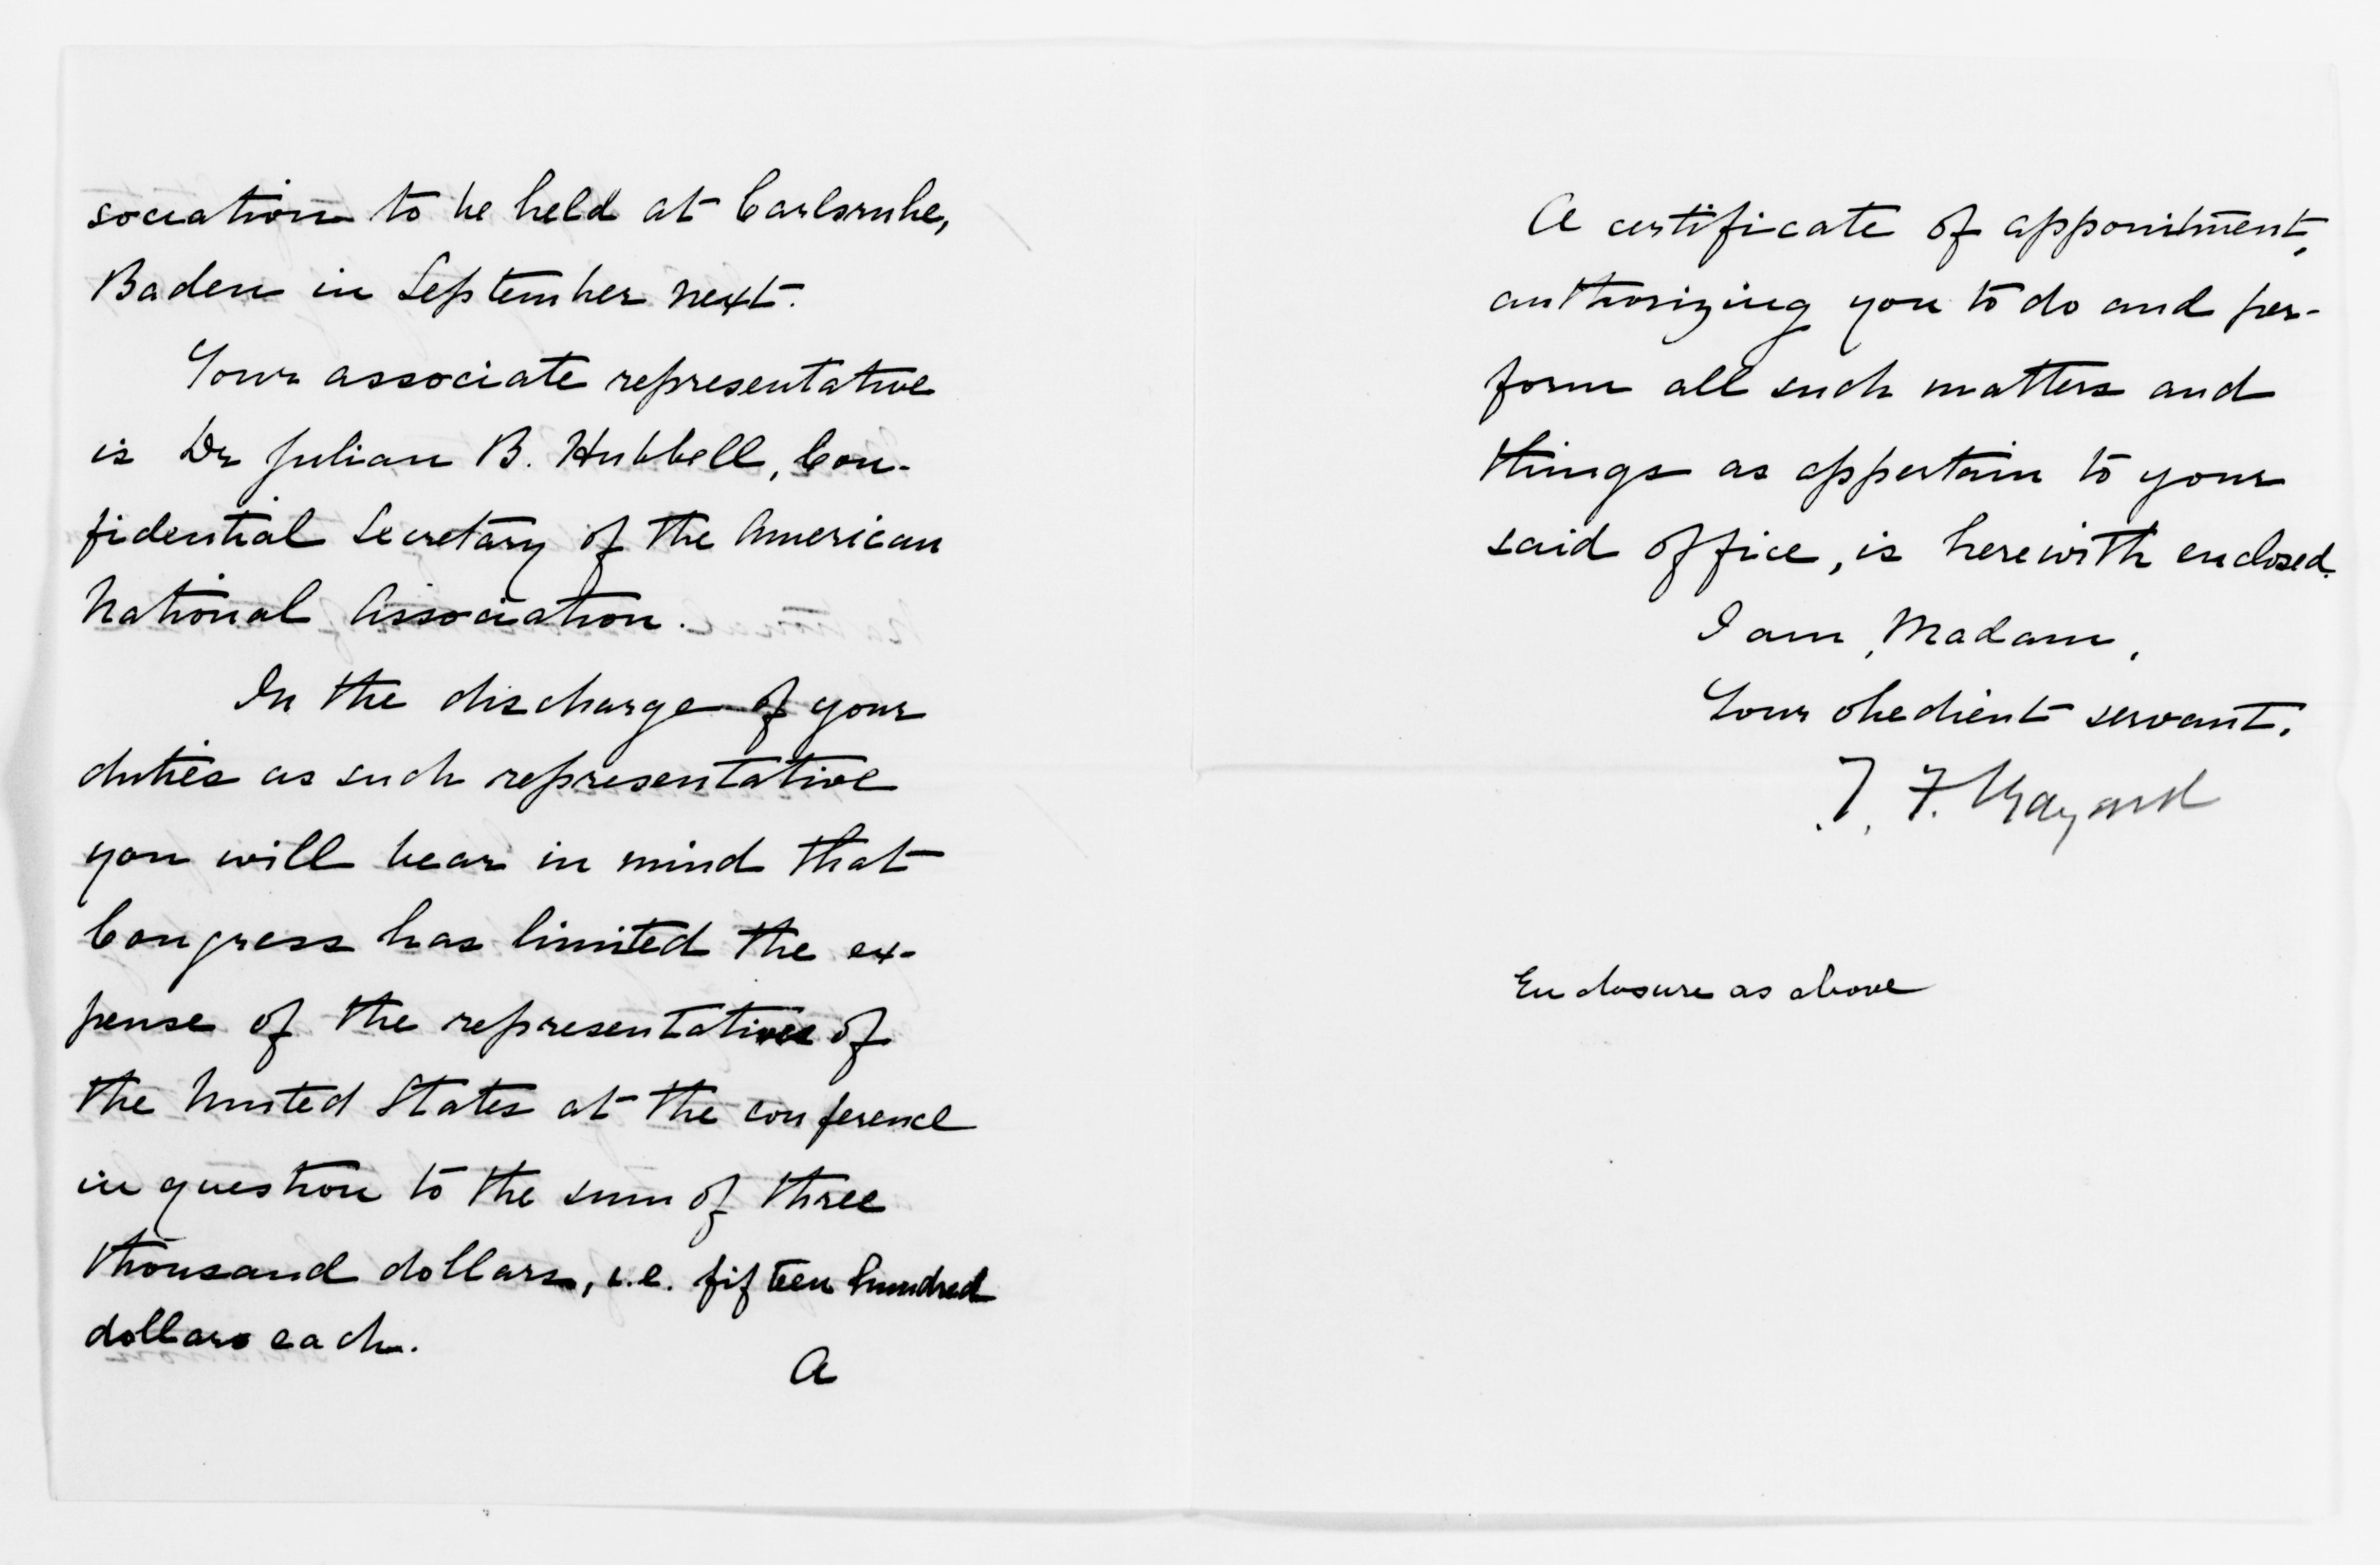 sociation to be held at Carlsruhe,
Baden in September next.
Your associate representative
is Dr Julian B. Hubbell, Con-
fidential Secretary of the American
National Association.
In the discharge of your
duties as such representative
you will bear in mind that
Congress has limited the ex-
pense of the representatives of
the United States at the conference
in question to the sum of three
thousand dollars, i.e. fifteen hundred
dollars each.
A
A certificate of appointment,
authorizing you to do and per-
form all such matters and
things as appertain to your
said office, is herewith enclosed.
I am, Madam,
Your obedient servant,
T. F. Bayard
Enclosure as above